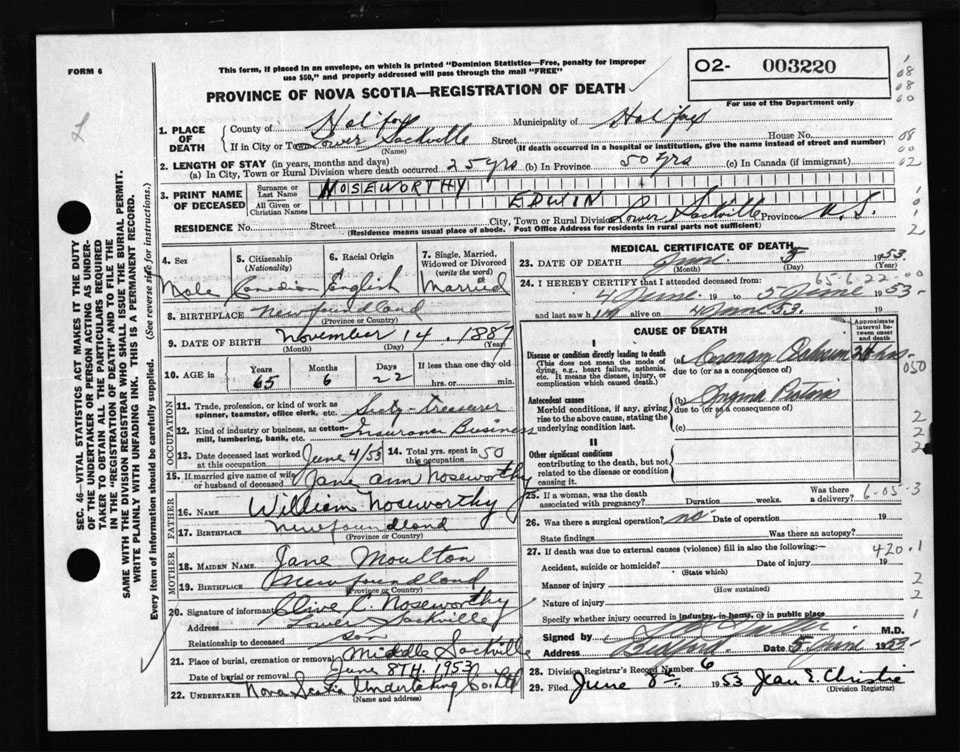 FORM 6
This form, if placed in an envelope, on which is printed "Dominion Statistics—Free, penalty for improper
use $50," and properly addressed will pass through the mail "FREE"
PROVINCE OF NOVA SCOTIA—REGISTRATION OF DEATH
02- 003220
For use of the Department only
1. PLACE OF DEATH
County of Halifax Municipality of Halifax
If in City or Town Lower Sackville Street House No.
(Name) (If death occurred in a hospital or institution, give the name instead of street and number)
2. LENGTH OF STAY (in years, months and days)
(a) In City, Town or Rural Division where death occurred 25 yrs (b) In Province 50 yrs (c) In Canada (if immigrant)
3. PRINT NAME OF DECEASED
Surname or Last Name NOSEWORTHY
All Given or Christian Names EDWIN
RESIDENCE No. Street City, Town or Rural Division Lower Sackville Province N.S.
(Residence means usual place of abode. Post Office Address for residents in rural parts not sufficient)
SEC. 46—VITAL STATISTICS ACT MAKES IT THE DUTY
OF THE UNDERTAKER OR PERSON ACTING AS UNDER-
TAKER TO OBTAIN ALL THE PARTICULARS REQUIRED
IN THE "REGISTRATION OF DEATH" AND TO FILE THE
SAME WITH THE DIVISION REGISTRAR WHO SHALL ISSUE THE BURIAL PERMIT.
WRITE PLAINLY WITH UNFADING INK. THIS IS A PERMANENT RECORD.
Every item of information should be carefully supplied. (See reverse side for instructions.)
4. Sex
Male
5. Citizenship (Nationality)
Canadian
6. Racial Origin
English
7. Single, Married, Widowed or Divorced (write the word)
Married
8. BIRTHPLACE Newfoundland
(Province or Country)
9. DATE OF BIRTH November 14, 1887
(Month) (Day) (Year)
10. AGE in Years Months Days If less than one day old
65 6 22 hrs. or min.
OCCUPATION
11. Trade, profession or kind of work as spinner, teamster, office clerk, etc. Secty-treasurer
12. Kind of industry or business, as cotton-mill, lumbering, bank, etc. Insurance Business
13. Date deceased last worked at this occupation June 4/53
14. Total yrs. spent in this occupation 50
15. If married give name of wife or husband of deceased Jane Ann Noseworthy
FATHER
16. NAME William Noseworthy
17. BIRTHPLACE Newfoundland
(Province or Country)
MOTHER
18. MAIDEN NAME Jane Moulton
19. BIRTHPLACE Newfoundland
(Province or Country)
20. Signature of informant Clive C. Noseworthy
Address Lower Sackville
Relationship to deceased son
21. Place of burial, cremation or removal Middle Sackville
Date of burial or removal June 8TH. 1953
22. UNDERTAKER Nova Scotia Undertaking Co. Ltd
(Name and address)
MEDICAL CERTIFICATE OF DEATH
23. DATE OF DEATH June 5 1953
(Month) (Day)
65-6-22-00
24. I HEREBY CERTIFY that I attended deceased from:
4 June 19 to 5 June 1953
and last saw h alive on 4 June 53. 19
CAUSE OF DEATH
Approximate interval between onset and death
I
Disease or condition directly leading to death
(This does not mean the mode of dying, e.g., heart failure, asthenia, etc. It means the disease, injury, or complication which caused death.)
(a) Coronary Occlusion 24 hrs.
due to (or as a consequence of)
Antecedent causes
Morbid conditions, if any, giving rise to the above cause, stating the underlying condition last.
(b) Angina Pectoris
due to (or as a consequence of)
(c)
II
Other significant conditions
contributing to the death, but not related to the disease or condition causing it.
25. If a woman, was the death associated with pregnancy? Duration weeks. Was there a delivery?
6-05-3
26. Was there a surgical operation? no Date of operation 19
State findings Was there an autopsy?
27. If death was due to external causes (violence) fill in also the following:—
420.1
Accident, suicide or homicide? Date of injury 19
(State which)
Manner of injury
(How sustained)
Nature of injury
Specify whether injury occurred in industry, in home, or in public place
Signed by M.D.
Address Bedford Date 5 June 1953
28. Division Registrar's Record Number 6
29. Filed June 8th, 1953 Jean E. Christie
(Division Registrar)